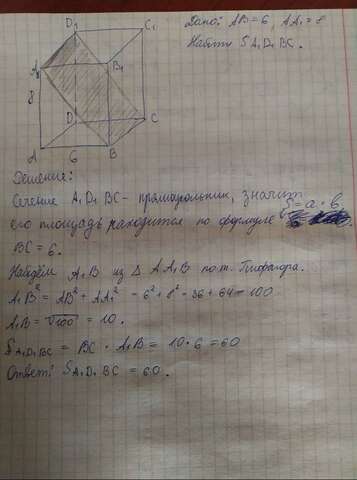 Дано: AB=6, AA₁=8
Найти SA₁D₁BC.
D₁
C₁
A₁
B₁
8
D
C
A
6
B
Решение:
Сечение A₁D₁BC - прямоугольник, значит
его площадь находится по формуле S=a·b
BC=6.
Найдём A₁B из Δ AA₁B по т. Пифагора.
A₁B² = AB² + AA₁² = 6² + 8² = 36 + 64 = 100
A₁B = √100 = 10.
SA₁D₁BC = BC · A₁B = 10 · 6 = 60
Ответ: SA₁D₁BC = 60.